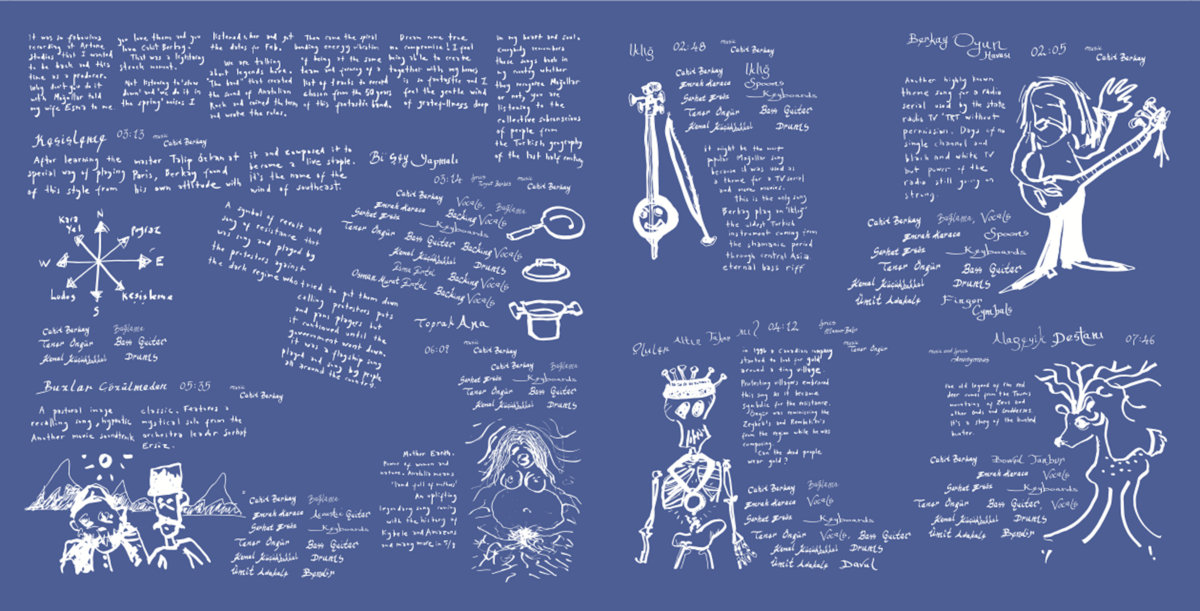 It was so fabulous
recording at Artone
studios that I wanted
to be back and this
time as a producer.
Why don't you do it
with Moğollar told
my wife, Esra to me.
you love them and you
love Cahit Berkay.
That was a lightning
struck moment.
Not listening to "slow
down" and "we do it in
the spring" voices I
listened to her and got
the dates for Feb.
We are talking
about legends here.
"The band" that created
the sound of Anatolian
Rock and coined the term
and wrote the rules.
Then came the spiral
bonding energy vibration
of being at the same
team and forming of a
list of tracks to record
chosen from the 50 years
of this fantastic band.
Dream came true
no compromise! I feel
being able to create
together with my heroes
is so fantastic and I
feel the gentle wind
of gratefulness deep
in my heart and soul.
Everybody remembers
these songs back in
my country whether
they recognize Moğollar
or not, you are
listening to the
collective subconscious
of people from
the Turkish geography
of the last half century
Keşişleme 03:13 music
Cahit Berkay
After learning the
special way of playing
of this style from
master Talip Özkan at
Paris, Berkay found
his own attitude with
it and composed it to
become a live staple.
It's the name of the
wind of southeast.
Kara
Yel
N
Poyraz
W
E
Lodos
S
Keşişleme
Cahit Berkay Bağlama
Taner Öngür Bass Guitar
Kemal Küçükbakkal Drums
Bi Şey Yapmalı
03:14 lyrics music
Cahit Berkay
Cahit Berkay Vocals, Bağlama
Emrah Karaca Backing Vocals
Serhat Ersöz Keyboards
Taner Öngür Bass Guitar, Backing Vocals
Kemal Küçükbakkal Drums
Backing Vocals
Osman Murat Backing Vocals
A symbol of revolt and
song of resistance that
was sung and played by
the protestors against
the dark regime who tried to put them down
calling protestors pots
and pans players but
it continued until the
government went down
It was a flagship song
played and sung by people
all around the country.
Buzlar Çözülmeden 05:35 music
Cahit Berkay
A pastoral image
recalling song, hypnotic
Another movie soundtrack
classic. Features a
mystical solo from the
orchestra leader Serhat
Ersöz.
Cahit Berkay Bağlama
Emrah Karaca Acoustic Guitar
Serhat Ersöz Keyboards
Taner Öngür Bass Guitar
Kemal Küçükbakkal Drums
Ümit Adakale Bendir
Toprak Ana
06:09 music
Cahit Berkay
Cahit Berkay Bağlama
Serhat Ersöz Keyboards
Taner Öngür Bass Guitar
Kemal Küçükbakkal Drums
Mother Earth.
Power of women and
nature. Anatolia means
"land full of mother"
An uplifting
legendary song coming
with the history of
Kybele and Amazons
and many more in 5/8
Iklığ 02:48 music
Cahit Berkay
Cahit Berkay Iklığ
Emrah Karaca Spoons
Serhat Ersöz Keyboards
Taner Öngür Bass Guitar
Kemal Küçükbakkal Drums
It might be the most
popular Moğollar song
because it was used as
a theme for a TV serial
and some movies.
This is the only song
Berkay play on "Iklığ"
the oldest Turkish
instrument coming from
the shamanic period
through central Asia
eternal bass riff
Berkay Oyun
Havası 02:05 music
Cahit Berkay
Another highly known
theme song for a radio
serial used by the state
radio TV "TRT" without
permission. Days of no
single channel and
black and white TV
but power of the
radio still going on
strong.
Cahit Berkay Bağlama, Vocals
Emrah Karaca Spoons
Serhat Ersöz Keyboards
Taner Öngür Bass Guitar
Kemal Küçükbakkal Drums
Ümit Adakale Finger
Cymbals
Ölüler Altın Takar mı? 04:12 lyrics
music
Taner Öngür
In 1990 a Canadian company
started to look for gold
around a tiny village.
Protesting villagers embraced
this song as it became
symbolic for the resistance.
Öngür was reminiscing the
Zeybek's and Rembetiko's
from the region while he was
composing.
"Can the dead people
wear gold?
Cahit Berkay Bağlama
Emrah Karaca Vocals
Serhat Ersöz Keyboards
Taner Öngür Vocals, Bass Guitar
Kemal Küçükbakkal Drums
Ümit Adakale Davul
Alageyik Destanı
music and lyrics 07:46
Anonymous
The old legend of the red
deer comes from the Taurus
mountains of Zeus and
other Gods and Goddesses.
It's a story of the hunted
hunter.
Cahit Berkay Bowed Tanbur
Emrah Karaca Vocals
Serhat Ersöz Keyboards
Taner Öngür Bass Guitar, Vocals
Kemal Küçükbakkal Drums
Ümit Adakale Bendir